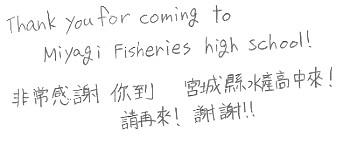 Thank you for coming to
Miyagi Fisheries high school!
非常感謝 你到 宮城縣水產高中來!
請再來! 謝謝!!